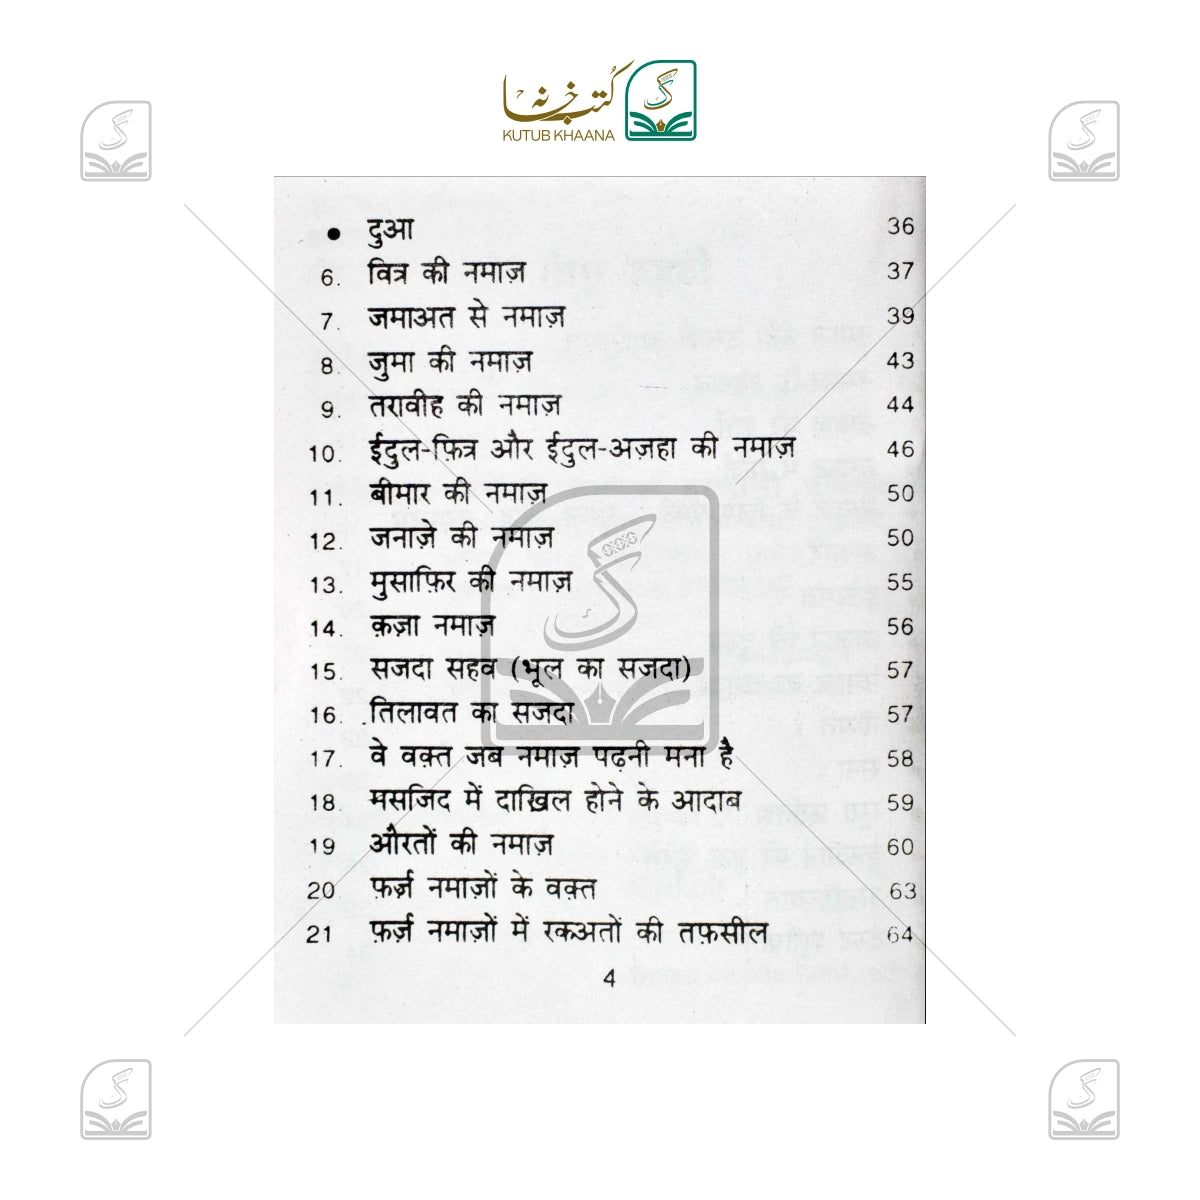 کتب خانہ
KUTUB KHAANA
• दुआ 36
6. वित्र की नमाज़ 37
7. जमाअत से नमाज़ 39
8. जुमा की नमाज़ 43
9. तरावीह की नमाज़ 44
10. ईदुल-फ़ित्र और ईदुल-अज़हा की नमाज़ 46
11. बीमार की नमाज़ 50
12. जनाज़े की नमाज़ 50
13. मुसाफ़िर की नमाज़ 55
14. क़ज़ा नमाज़ 56
15. सजदा सहव (भूल का सजदा) 57
16. तिलावत का सजदा 57
17. वे वक़्त जब नमाज़ पढ़नी मना है 58
18. मसजिद में दाख़िल होने के आदाब 59
19 औरतों की नमाज़ 60
20. फ़र्ज़ नमाज़ों के वक़्त 63
21 फ़र्ज़ नमाज़ों में रकअतों की तफ़सील 64
4